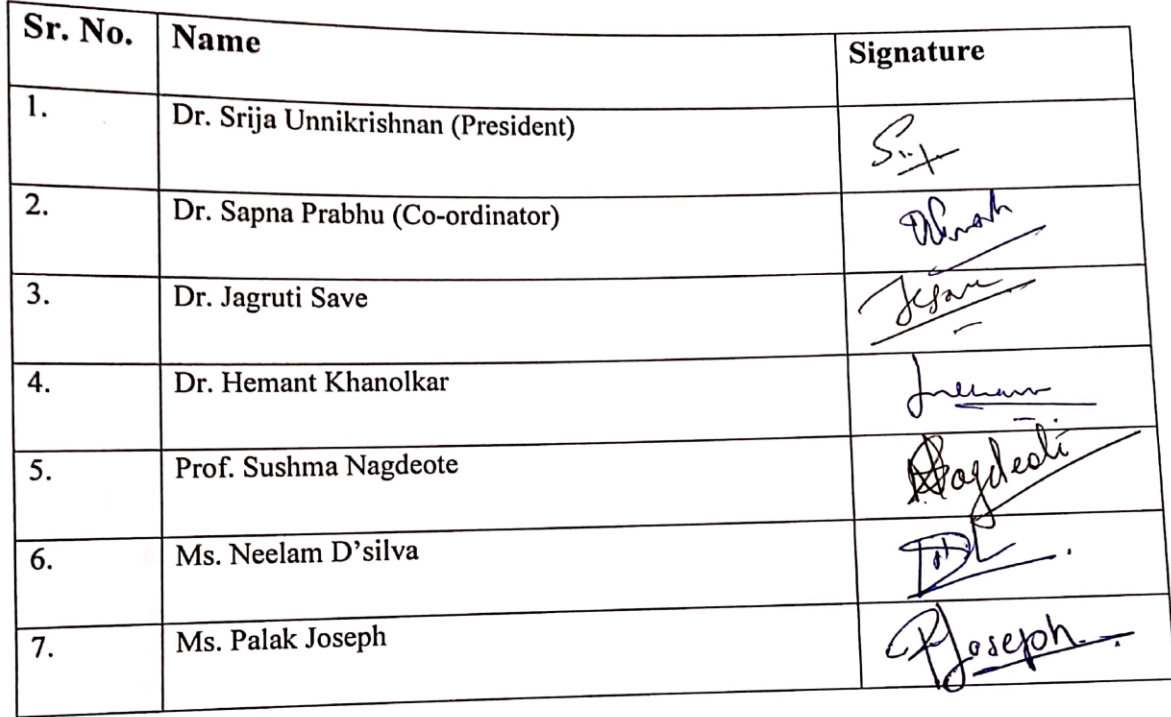 Sr. No. Name Signature
1. Dr. Srija Unnikrishnan (President)
2. Dr. Sapna Prabhu (Co-ordinator)
3. Dr. Jagruti Save
4. Dr. Hemant Khanolkar
5. Prof. Sushma Nagdeote
6. Ms. Neelam D’silva
7. Ms. Palak Joseph PJoseph